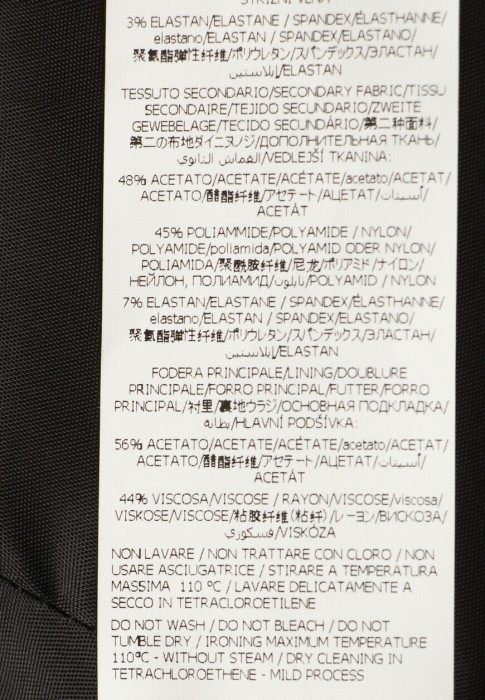 STŘIŽNÍ VLNA
3% ELASTAN/ELASTANE / SPANDEX/ÉLASTHANNE/
elastano/ELASTAN / SPANDEX/ELASTANO/
聚氨酯弹性纤维/ポリウレタン/スパンデックス/ЭЛАСТАН/
إيلاستين/ELASTAN
TESSUTO SECONDARIO/SECONDARY FABRIC/TISSU
SECONDAIRE/TEJIDO SECUNDARIO/ZWEITE
GEWEBELAGE/TECIDO SECUNDÁRIO/第二种面料/
第二の布地ダイニヌノジ/ДОПОЛНИТЕЛЬНАЯ ТКАНЬ/
القماش الثانوي/VEDLEJŠÍ TKANINA:
48% ACETATO/ACETATE/ACÉTATE/acetato/ACETAT/
ACETATO/醋酯纤维/アセテート/АЦЕТАТ/أسيتات/
ACETÁT
45% POLIAMMIDE/POLYAMIDE / NYLON/
POLYAMIDE/poliamida/POLYAMID ODER NYLON/
POLIAMIDA/聚酰胺纤维/尼龙/ポリアミド/ナイロン/
НЕЙЛОН, ПОЛИАМИД/نايلون/POLYAMID / NYLON
7% ELASTAN/ELASTANE / SPANDEX/ÉLASTHANNE/
elastano/ELASTAN / SPANDEX/ELASTANO/
聚氨酯弹性纤维/ポリウレタン/スパンデックス/ЭЛАСТАН/
إيلاستين/ELASTAN
FODERA PRINCIPALE/LINING/DOUBLURE
PRINCIPALE/FORRO PRINCIPAL/FUTTER/FORRO
PRINCIPAL/衬里/裏地ウラジ/ОСНОВНАЯ ПОДКЛАДКА/
بطانه/HLAVNÍ PODŠÍVKA:
56% ACETATO/ACETATE/ACÉTATE/acetato/ACETAT/
ACETATO/醋酯纤维/アセテート/АЦЕТАТ/أسيتات/
ACETÁT
44% VISCOSA/VISCOSE / RAYON/VISCOSE/viscosa/
VISKOSE/VISCOSE/粘胶纤维(粘纤)/レーヨン/ВИСКОЗА/
فسكوزي/VISKÓZA
NON LAVARE / NON TRATTARE CON CLORO / NON
USARE ASCIUGATRICE / STIRARE A TEMPERATURA
MASSIMA 110 °C / LAVARE DELICATAMENTE A
SECCO IN TETRACLOROETILENE
DO NOT WASH / DO NOT BLEACH / DO NOT
TUMBLE DRY / IRONING MAXIMUM TEMPERATURE
110°C - WITHOUT STEAM / DRY CLEANING IN
TETRACHLOROETHENE - MILD PROCESS